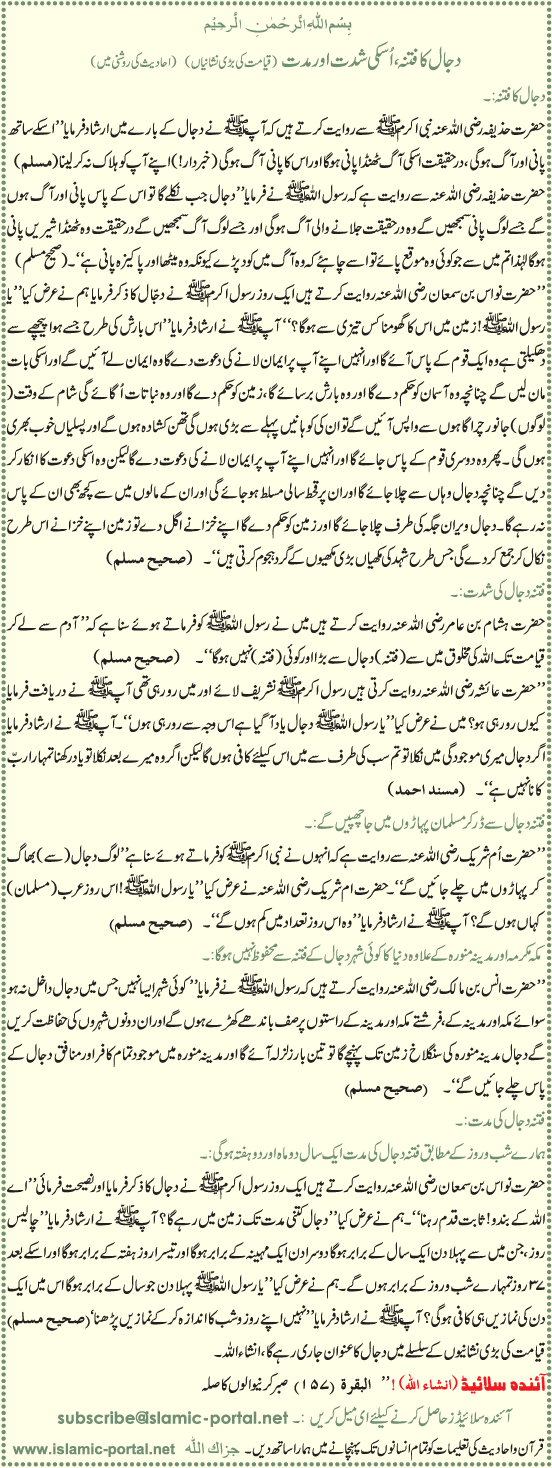 بِسْمِ اللهِ الرَّحْمٰنِ الرَّحِيْمِ
دجال کا فتنہ، اُسکی شدت اور مدت (قیامت کی بڑی نشانیاں) (احادیث کی روشنی میں)
دجال کا فتنہ:۔
حضرت حذیفہ رضی اللہ عنہ نبی اکرم ﷺ سے روایت کرتے ہیں کہ آپ ﷺ نے دجال کے بارے میں ارشاد فرمایا ’’اسکے ساتھ
پانی اور آگ ہوگی، درحقیقت اسکی آگ ٹھنڈا پانی ہوگا اور اس کا پانی آگ ہوگی (خبردار!) اپنے آپ کو ہلاک نہ کر لینا (مسلم)
حضرت حذیفہ رضی اللہ عنہ سے روایت ہے کہ رسول اللہ ﷺ نے فرمایا ’’دجال جب نکلے گا تو اس کے پاس پانی اور آگ ہوں
گے جسے لوگ پانی سمجھیں گے وہ درحقیقت جلانے والی آگ ہوگی اور جسے لوگ آگ سمجھیں گے درحقیقت وہ ٹھنڈا شیریں پانی
ہوگا لہٰذا تم میں سے جو کوئی وہ موقع پائے تو اسے چاہئے کہ وہ آگ میں کود پڑے کیونکہ وہ میٹھا اور پاکیزہ پانی ہے‘‘۔ (صحیح مسلم)
’’حضرت نواس بن سمعان رضی اللہ عنہ روایت کرتے ہیں ایک روز رسول اکرم ﷺ نے دجّال کا ذکر فرمایا ہم نے عرض کیا ’’یا
رسول اللہ ﷺ! زمین میں اس کا گھومنا کس تیزی سے ہوگا؟‘‘ آپ ﷺ نے ارشاد فرمایا ’’اس بارش کی طرح جسے ہوا پیچھے سے
دھکیلتی ہے وہ ایک قوم کے پاس آئے گا اور انہیں اپنے آپ پر ایمان لانے کی دعوت دے گا وہ ایمان لے آئیں گے اور اسکی بات
مان لیں گے چنانچہ وہ آسمان کو حکم دے گا اور وہ بارش برسائے گا، زمین کو حکم دے گا اور وہ نباتات اُگائے گی شام کے وقت (
لوگوں) جانور چراگاہوں سے واپس آئیں گے تو ان کی کوہانیں پہلے سے بڑی ہوں گی تھن کشادہ ہوں گے اور پسلیاں خوب بھری
ہوں گی۔ پھر وہ دوسری قوم کے پاس جائے گا اور انہیں اپنے آپ پر ایمان لانے کی دعوت دے گا لیکن وہ اسکی دعوت کا انکار کر
دیں گے چنانچہ دجال وہاں سے چلا جائے گا اور ان پر قحط سالی مسلط ہو جائے گی اور ان کے مالوں میں سے کچھ بھی ان کے پاس
نہ رہے گا۔ دجال ویران جگہ کی طرف چلا جائے گا اور زمین کو حکم دے گا اپنے خزانے اگل دے تو زمین اپنے خزانے اس طرح
نکال کر جمع کر دے گی جس طرح شہد کی مکھیاں بڑی مکھیوں کے گرد ہجوم کرتی ہیں‘‘۔ (صحیح مسلم)
فتنہ دجال کی شدت:۔
حضرت ہشام بن عامر رضی اللہ عنہ روایت کرتے ہیں میں نے رسول اللہ ﷺ کو فرماتے ہوئے سنا ہے کہ ’’آدم سے لے کر
قیامت تک اللہ کی مخلوق میں سے (فتنہ) دجال سے بڑا اور کوئی (فتنہ) نہیں ہوگا‘‘۔ (صحیح مسلم)
’’حضرت عائشہ رضی اللہ عنہ روایت کرتی ہیں رسول اکرم ﷺ تشریف لائے اور میں رو رہی تھی آپ ﷺ نے دریافت فرمایا
کیوں رو رہی ہو؟ میں نے عرض کیا ’’یا رسول اللہ ﷺ دجال یاد آ گیا ہے اس وجہ سے رو رہی ہوں‘‘۔ آپ ﷺ نے ارشاد فرمایا
اگر دجال میری موجودگی میں نکلا تو تم سب کی طرف سے میں اس کیلئے کافی ہوں گا لیکن اگر وہ میرے بعد نکلا تو یاد رکھنا تمہارا ربّ
کانا نہیں ہے‘‘۔ (مسند احمد)
فتنہ دجال سے ڈر کر مسلمان پہاڑوں میں جا چھپیں گے:۔
’’حضرت اُم شریک رضی اللہ عنہ سے روایت ہے کہ انہوں نے نبی اکرم ﷺ کو فرماتے ہوئے سنا ہے ’’لوگ دجال (سے) بھاگ
کر پہاڑوں میں چلے جائیں گے‘‘۔ حضرت ام شریک رضی اللہ عنہ نے عرض کیا ’’یا رسول اللہ ﷺ! اس روز عرب (مسلمان)
کہاں ہوں گے؟ آپ ﷺ نے ارشاد فرمایا ’’وہ اس روز تعداد میں کم ہوں گے‘‘۔ (صحیح مسلم)
مکہ مکرمہ اور مدینہ منورہ کے علاوہ دنیا کا کوئی شہر دجال کے فتنہ سے محفوظ نہیں ہوگا:۔
’’حضرت انس بن مالک رضی اللہ عنہ روایت کرتے ہیں کہ رسول اللہ ﷺ نے فرمایا ’’کوئی شہر ایسا نہیں جس میں دجال داخل نہ ہو
سوائے مکہ اور مدینہ کے، فرشتے مکہ اور مدینہ کے راستوں پر صف باندھے کھڑے ہوں گے اور ان دونوں شہروں کی حفاظت کریں
گے دجال مدینہ منورہ کی سنگلاخ زمین تک پہنچے گا تو تین بار زلزلہ آئے گا اور مدینہ منورہ میں موجود تمام کافر اور منافق دجال کے
پاس چلے جائیں گے‘‘۔ (صحیح مسلم)
فتنہ دجال کی مدت:۔
ہمارے شب و روز کے مطابق فتنہ دجال کی مدت ایک سال دو ماہ اور دو ہفتہ ہوگی:۔
حضرت نواس بن سمعان رضی اللہ عنہ روایت کرتے ہیں ایک روز رسول اکرم ﷺ نے دجال کا ذکر فرمایا اور نصیحت فرمائی ’’اے
اللہ کے بندو! ثابت قدم رہنا‘‘۔ ہم نے عرض کیا ’’دجال کتنی مدت تک زمین میں رہے گا؟ آپ ﷺ نے ارشاد فرمایا ’’چالیس
روز، جن میں سے پہلا دن ایک سال کے برابر ہوگا دوسرا دن ایک مہینہ کے برابر ہوگا اور تیسرا روز ہفتہ کے برابر ہوگا اور اسکے بعد
۳۷ روز تمہارے شب و روز کے برابر ہوں گے۔ ہم نے عرض کیا ’’یا رسول اللہ ﷺ پہلا دن جو سال کے برابر ہوگا اس میں ایک
دن کی نمازیں ہی کافی ہوگی؟ آپ ﷺ نے ارشاد فرمایا ’’نہیں اپنے روز و شب کا اندازہ کر کے نمازیں پڑھنا‘ (صحیح مسلم)
قیامت کی بڑی نشانیوں کے سلسلے میں دجال کا عنوان جاری رہے گا، انشاء اللہ۔
آئندہ سلائیڈ (انشاء اللہ)! ’’ البقرة (۱۵۷) صبر کرنیوالوں کا صلہ
آئندہ سلائیڈز حاصل کرنے کیلئے ای میل کریں :۔ subscribe@islamic-portal.net
قرآن و احادیث کی تعلیمات کو تمام انسانوں تک پہنچانے میں ہمارا ساتھ دیں۔ جزاک اللہ www.islamic-portal.net